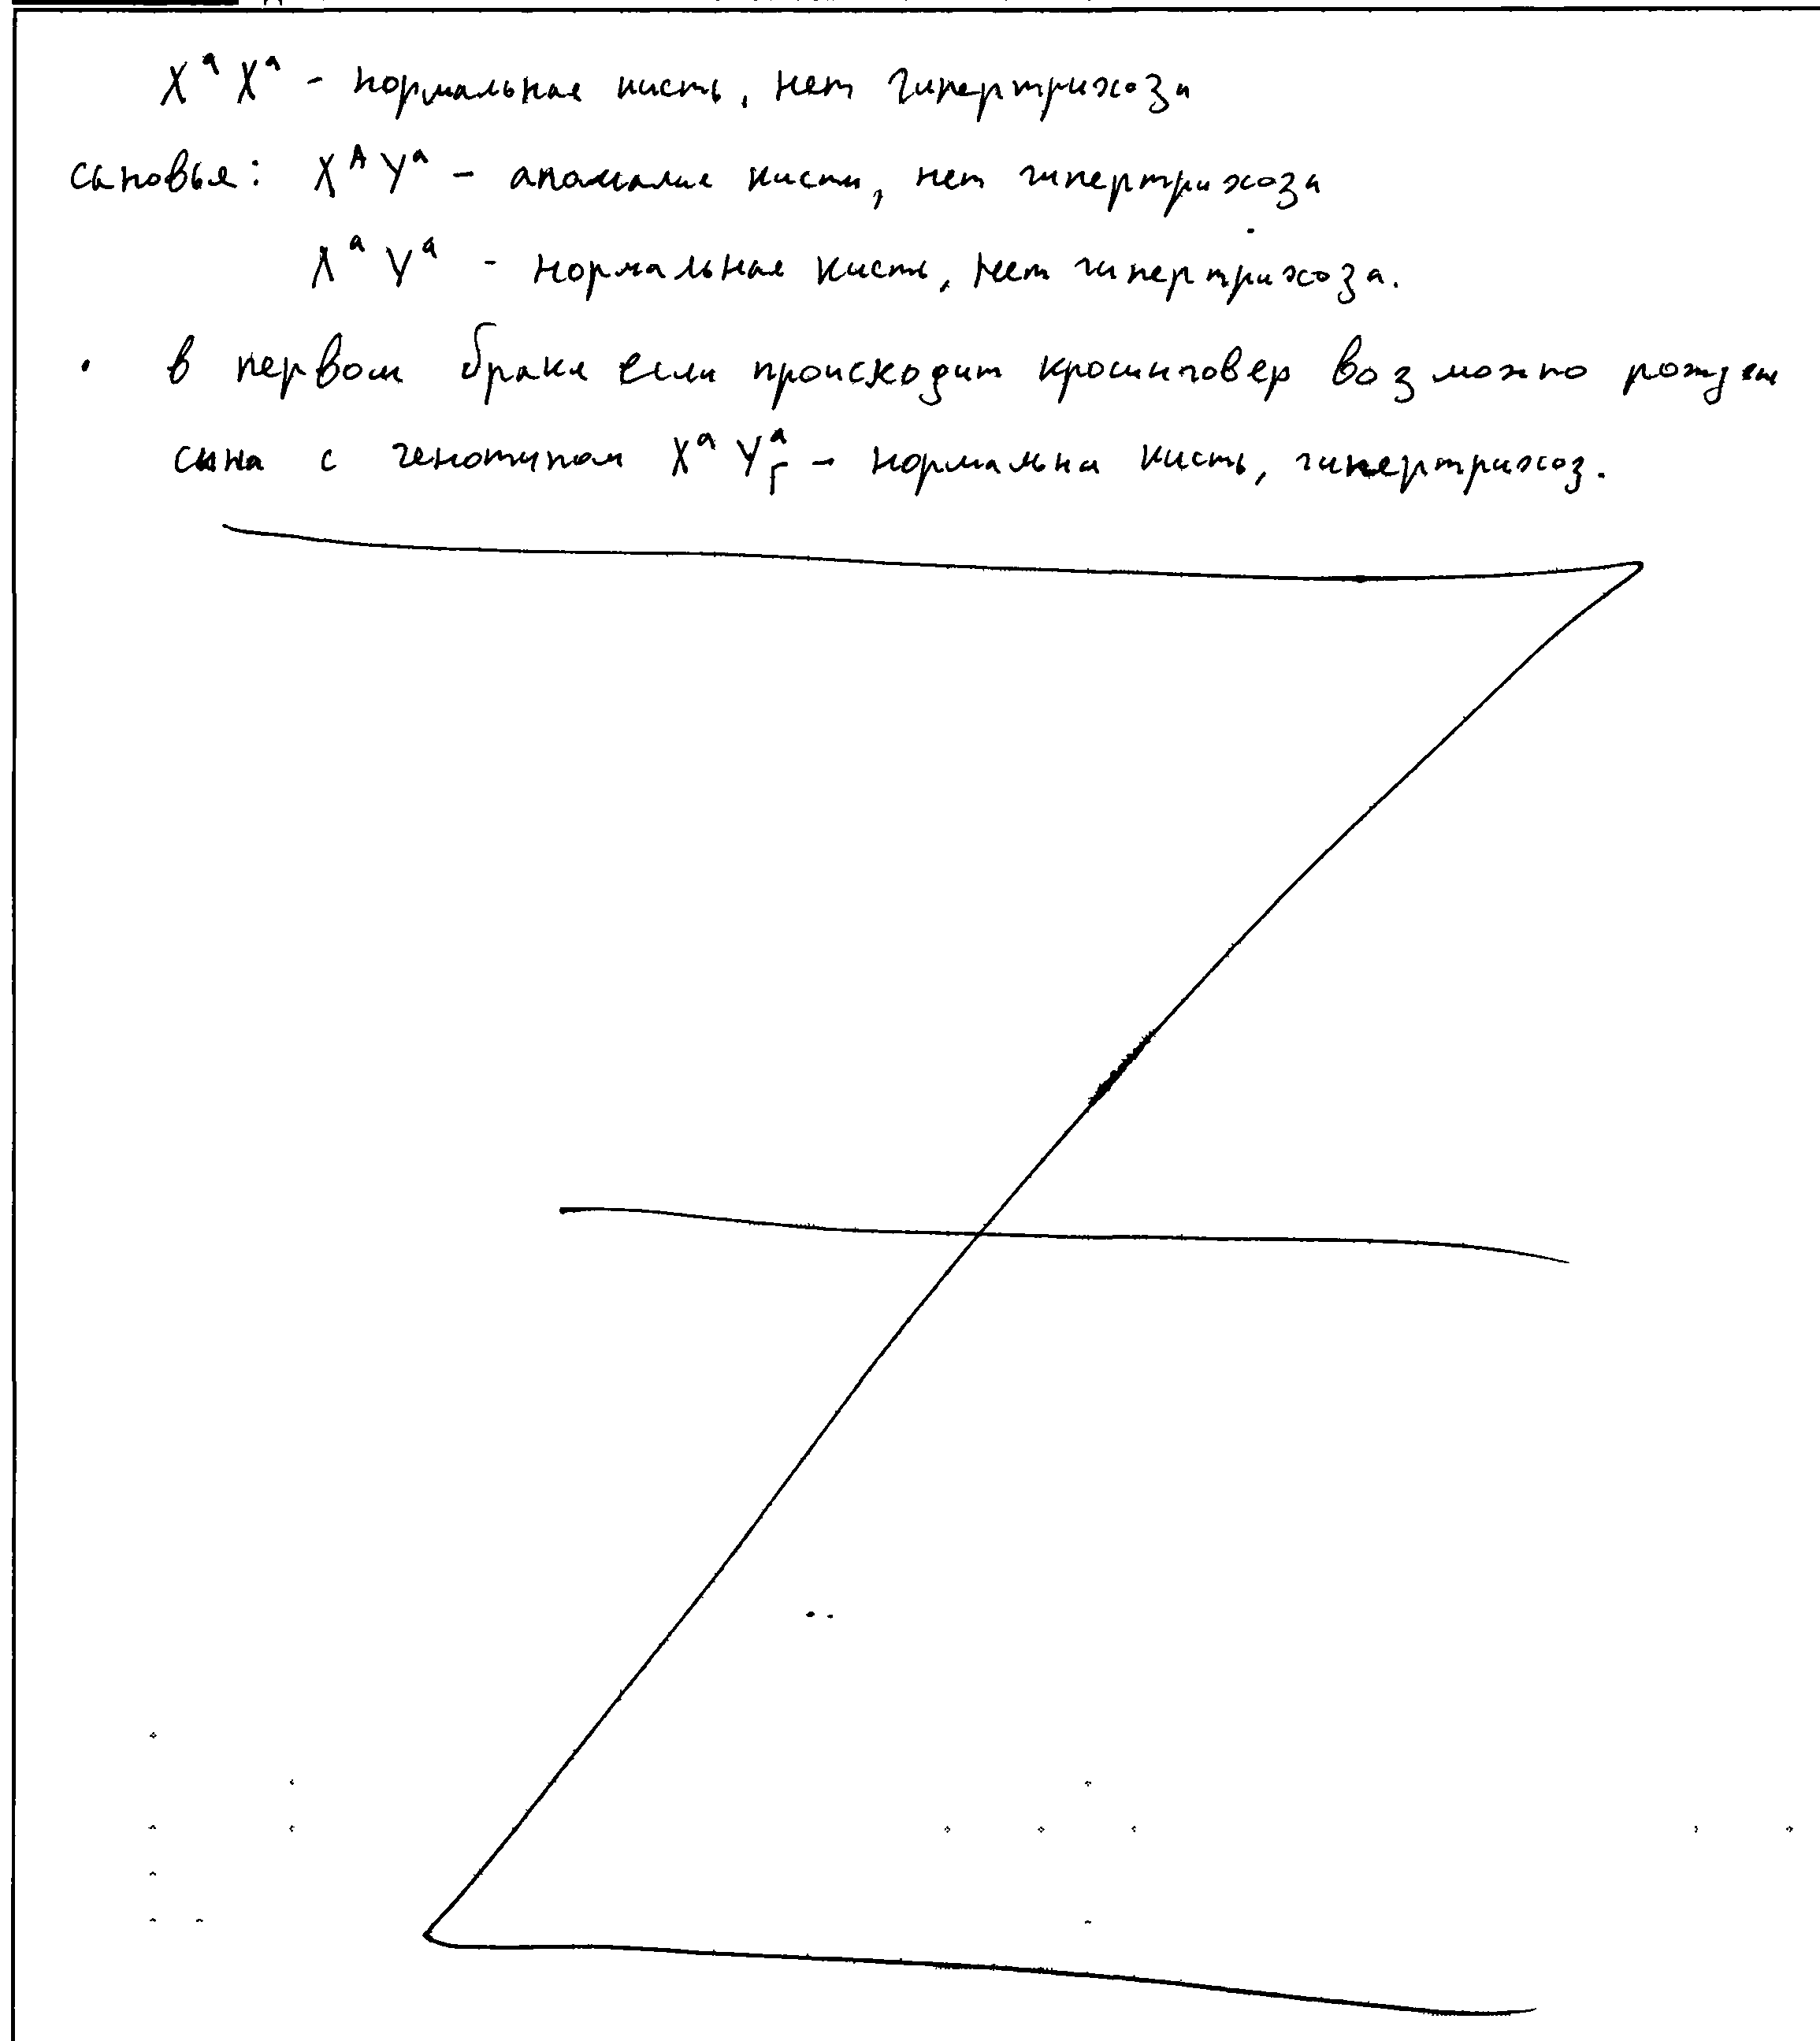 X^a X^a - нормальная кисть, нет гипертрихоза
сыновья: X^A Y^a - аномалия кисти, нет гипертрихоза
X^a Y^a - нормальная кисть, нет гипертрихоза.
• в первом браке если происходит кросинговер возможно рожден
сына с генотипом X^a Y^a_Г - нормальна кисть, гипертрихоз.